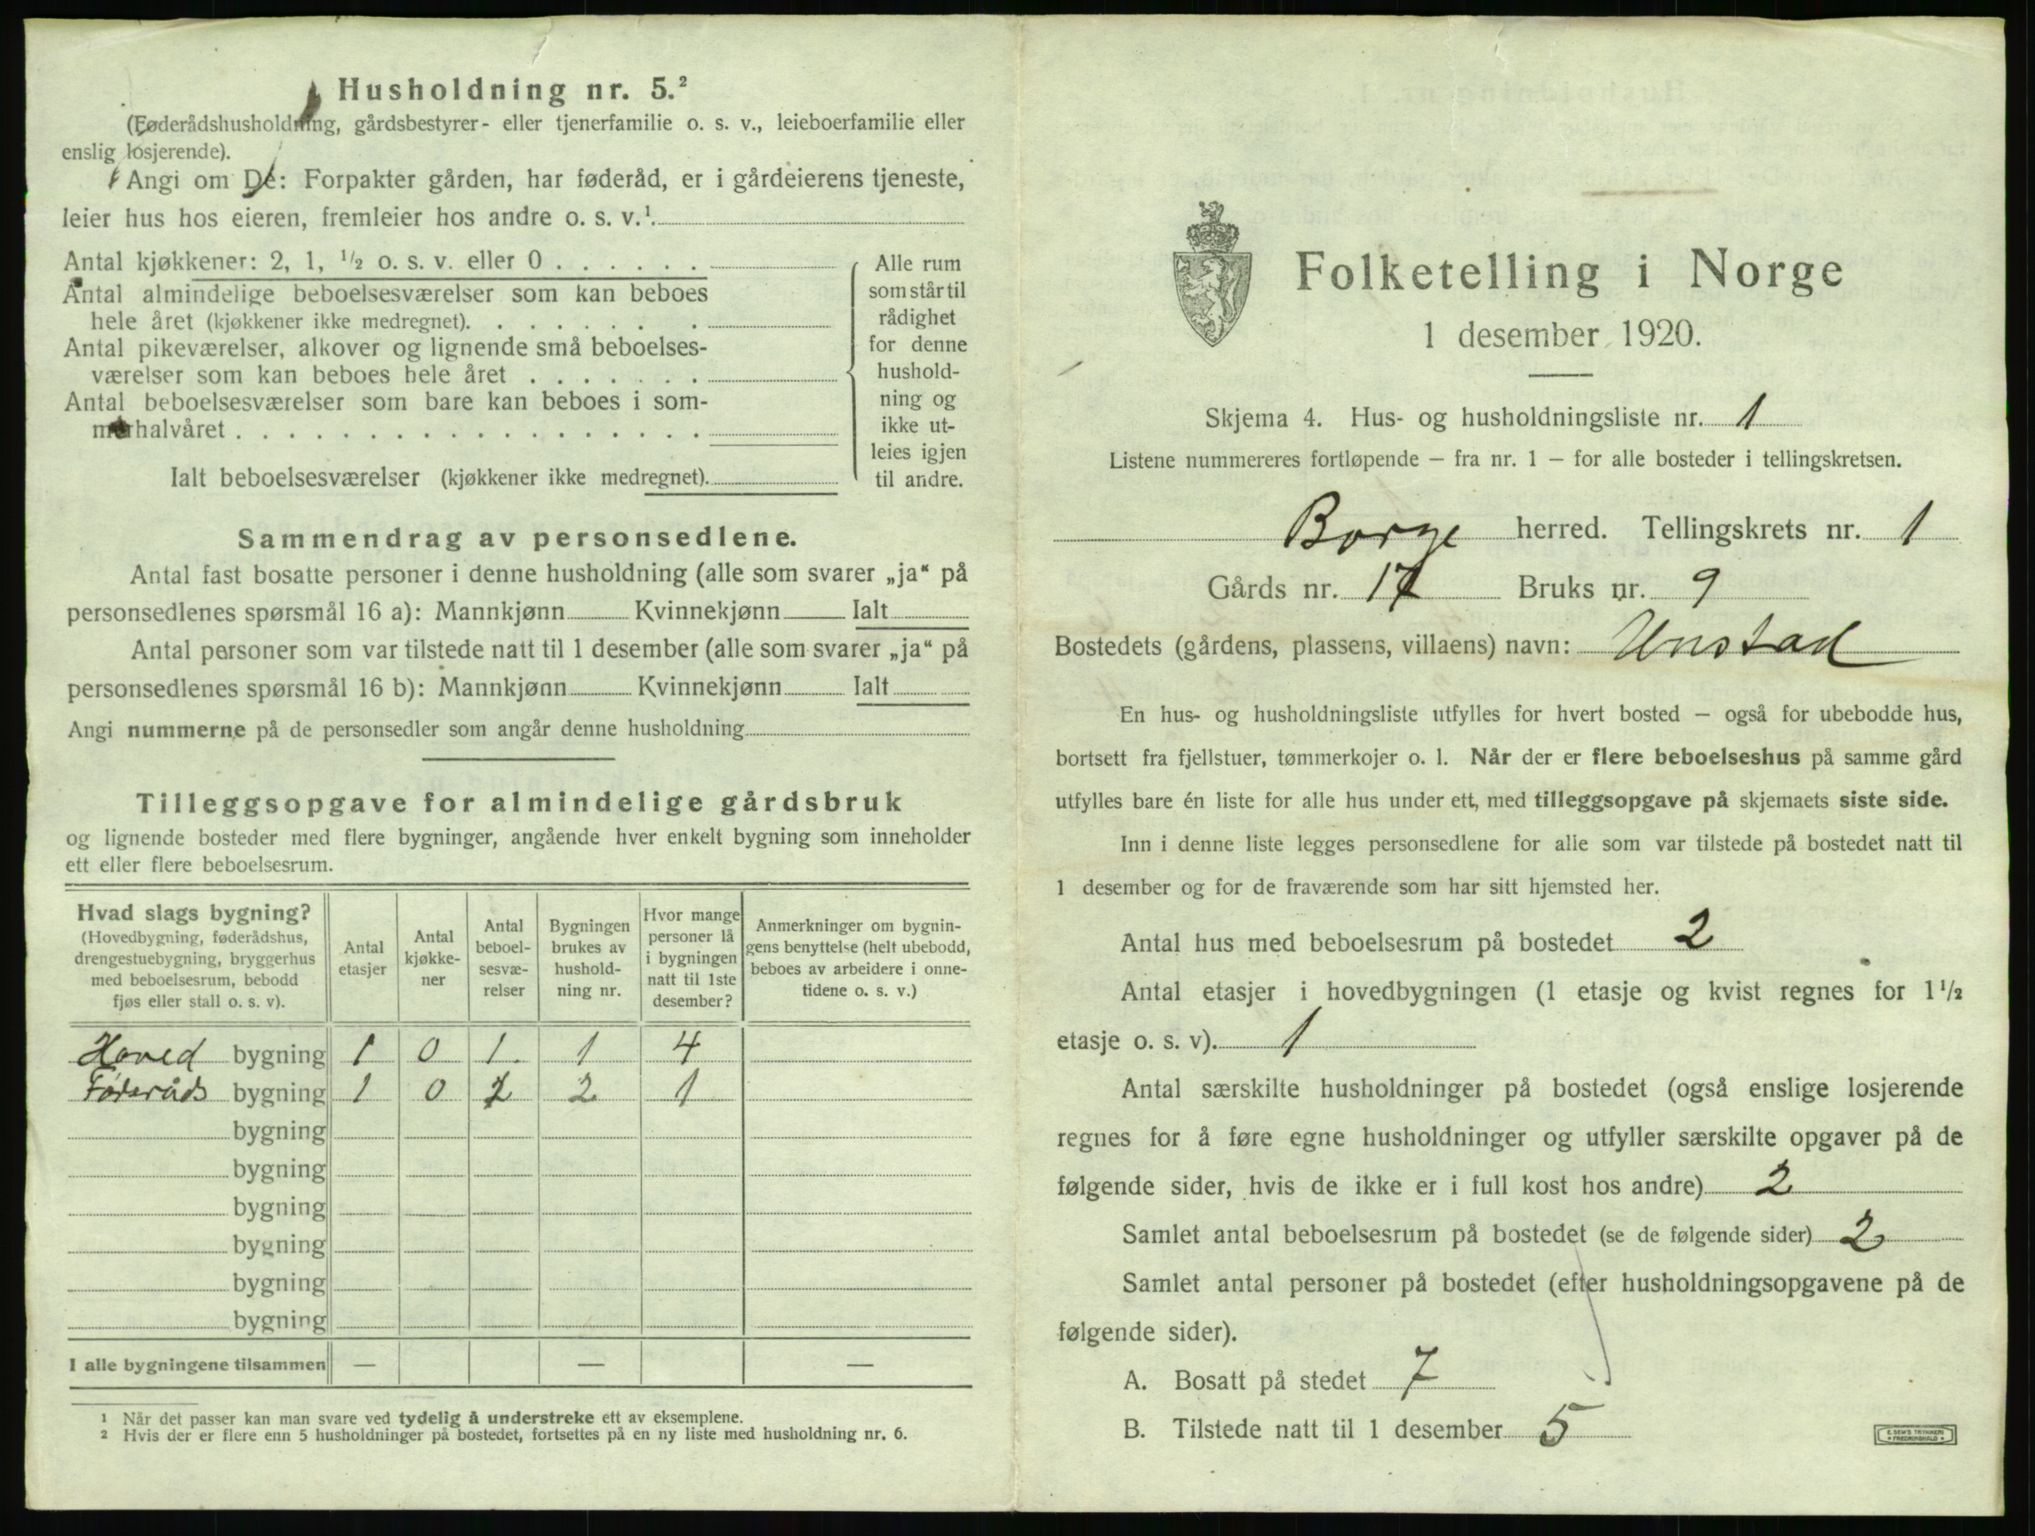 Husholdning nr. 5.²
(Føderådshusholdning, gårdsbestyrer- eller tjenerfamilie o. s. v., leieboerfamilie eller
enslig losjerende).
Angi om De: Forpakter gården, har føderåd, er i gårdeierens tjeneste,
leier hus hos eieren, fremleier hos andre o. s. v.¹
Antal kjøkkener: 2, 1, ¹/₂ o. s. v. eller 0
Antal almindelige beboelsesværelser som kan beboes
hele året (kjøkkener ikke medregnet).
Antal pikeværelser, alkover og lignende små beboelses-
værelser som kan beboes hele året
Antal beboelsesværelser som bare kan beboes i som-
merhalvåret
Ialt beboelsesværelser (kjøkkener ikke medregnet).
Alle rum
som står til
rådighet
for denne
hushold-
ning og
ikke ut-
leies igjen
til andre.
Sammendrag av personsedlene.
Antal fast bosatte personer i denne husholdning (alle som svarer „ja“ på
personsedlenes spørsmål 16 a): Mannkjønn Kvinnekjønn Ialt
Antal personer som var tilstede natt til 1 desember (alle som svarer „ja“ på
personsedlenes spørsmål 16 b): Mannkjønn Kvinnekjønn Ialt
Angi nummerne på de personsedler som angår denne husholdning
Tilleggsopgave for almindelige gårdsbruk
og lignende bosteder med flere bygninger, angående hver enkelt bygning som inneholder
ett eller flere beboelsesrum.
Hvad slags bygning?
(Hovedbygning, føderådshus,
drengestuebygning, bryggerhus
med beboelsesrum, bebodd
fjøs eller stall o. s. v).
Antal
etasjer
Antal
kjøkke-
ner
Antal
beboel-
sesvæ-
relser
Bygningen
brukes av
hushold-
ning nr.
Hvor mange
personer lå
i bygningen
natt til 1ste
desember?
Anmerkninger om bygnin-
gens benyttelse (helt ubebodd,
beboes av arbeidere i onne-
tidene o. s. v.)
Hoved bygning 1 0 1 1 4
Føderåds bygning 1 0 1 2 1
bygning
bygning
bygning
bygning
bygning
bygning
I alle bygningene tilsammen — — —
¹ Når det passer kan man svare ved tydelig å understreke ett av eksemplene.
² Hvis der er flere enn 5 husholdninger på bostedet, fortsettes på en ny liste med husholdning nr. 6.
Folketelling i Norge
1 desember 1920.
Skjema 4. Hus- og husholdningsliste nr. 1
Listene nummereres fortløpende — fra nr. 1 — for alle bosteder i tellingskretsen.
Borge herred. Tellingskrets nr. 1
Gårds nr. 17 Bruks nr. 9
Bostedets (gårdens, plassens, villaens) navn: Unstad
En hus- og husholdningsliste utfylles for hvert bosted — også for ubebodde hus,
bortsett fra fjellstuer, tømmerkojer o. l. Når der er flere beboelseshus på samme gård
utfylles bare én liste for alle hus under ett, med tilleggsopgave på skjemaets siste side.
Inn i denne liste legges personsedlene for alle som var tilstede på bostedet natt til
1 desember og for de fraværende som har sitt hjemsted her.
Antal hus med beboelsesrum på bostedet 2
Antal etasjer i hovedbygningen (1 etasje og kvist regnes for 1¹/₂
etasje o. s. v). 1
Antal særskilte husholdninger på bostedet (også enslige losjerende
regnes for å føre egne husholdninger og utfyller særskilte opgaver på de
følgende sider, hvis de ikke er i full kost hos andre) 2
Samlet antal beboelsesrum på bostedet (se de følgende sider) 2
Samlet antal personer på bostedet (efter husholdningsopgavene på de
følgende sider).
A. Bosatt på stedet 7
B. Tilstede natt til 1 desember 5
E. SEM'S TRYKKERI
FREDRIKSHALD